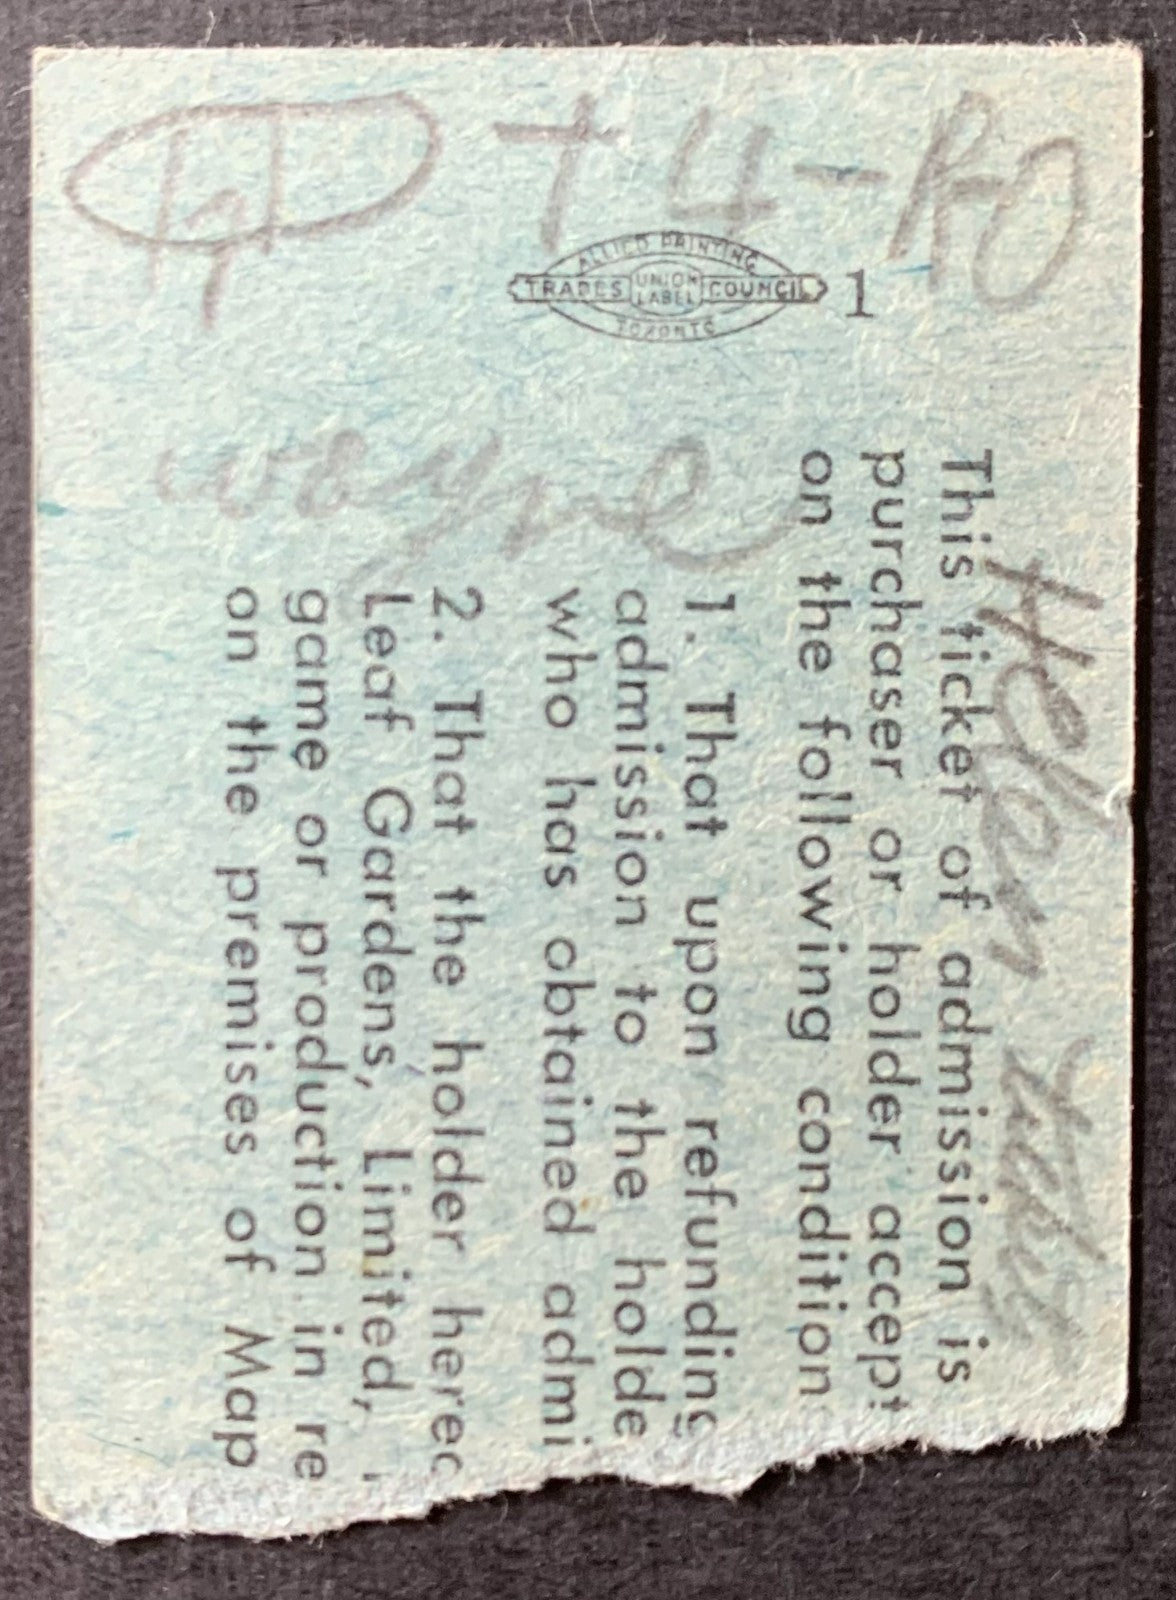 T 4-
ALLIED PRINTING
TRADES UNION LABEL COUNCIL 1
TORONTO
wayne
Helen
This ticket of admission is
purchaser or holder accept
on the following condition
1. That upon refunding
admission to the holde
who has obtained admi
2. That the holder herec
Leaf Gardens, Limited,
game or production in re
on the premises of Map